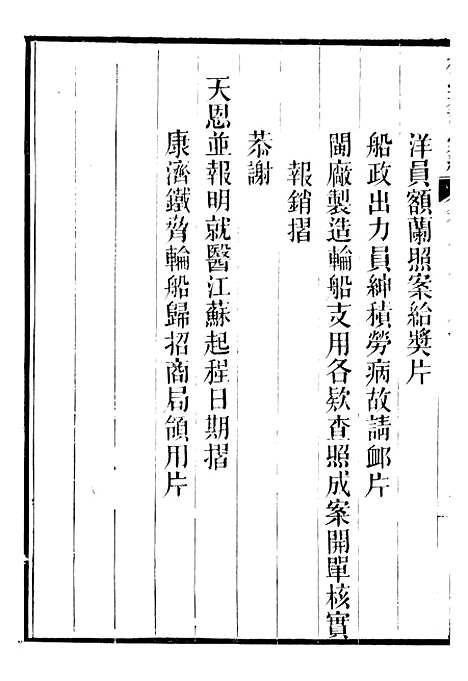 洋員額蘭照案給獎片
船政出力員紳積勞病故請卹片
閩廠製造輪船支用各欵查照成案開單核實
報銷摺
恭謝
天恩並報明就醫江蘇起程日期摺
康濟鐵脅輪船歸招商局領用片